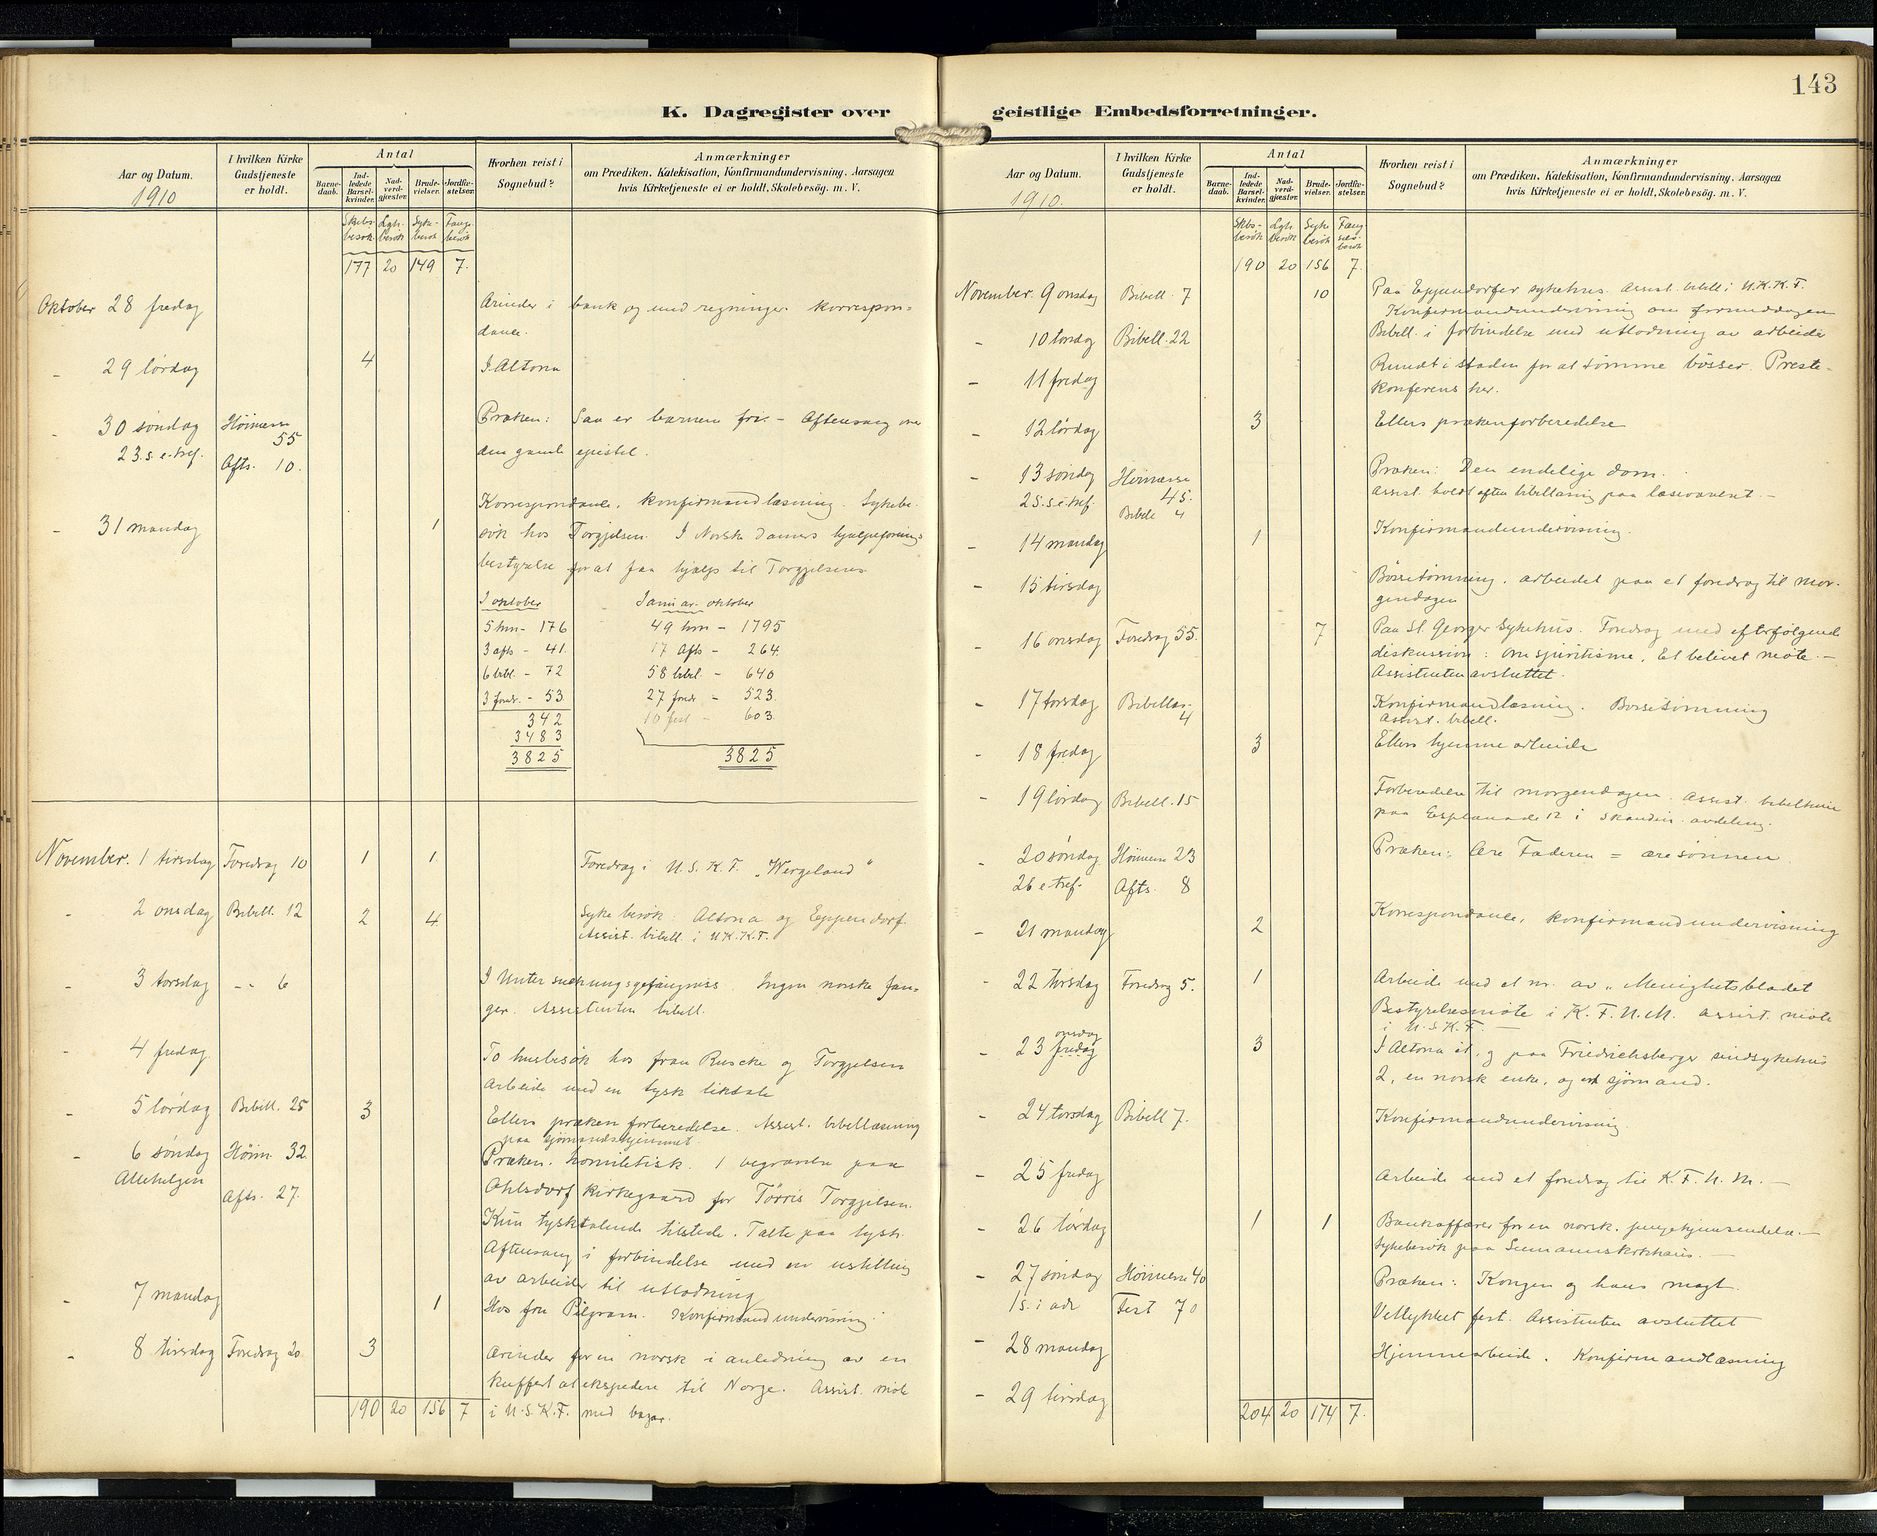 143
K. Dagregister over geistlige Embedsforretninger.
Aar og Datum.
1910
I hvilken Kirke
Gudstjeneste
er holdt.
Antal
Barne-
daab.
Ind-
ledede
Barsel-
kvinder.
Nad-
verd-
gjæster.
Brude-
vielser.
Jordfæ-
stelser.
Hvorhen reist i
Sognebud?
Anmærkninger
om Prædiken, Katekisation, Konfirmandundervisning, Aarsagen
hvis Kirketjeneste ei er holdt, Skolebesög. m. V.
Skibs-
besøk
Lgh.
besøk
Syke-
besøk
Fængs.
besøk
177 20 149 7.
Oktober 28 fredag
Ærinder i bank og med regninger. korrespon-
dance.
- 29 lørdag 4 I Altona
- 30 søndag Høimesse 55
23. s. e. tref. Afts. 10.
Præken: Saa er barnene fri. - Aftensang over
den gamle epistel.
- 31 mandag 1
Korrespondance, konfirmandlæsning. Sykebe-
søk hos Torgjelsen. I Norske damers hjælpeforenings
bestyrelse for at faa hjælp til Torgjelsens
I oktober Januar-oktober
5 hm - 176 49 hm - 1795
3 afts - 41. 17 Afts - 264.
6 bibl. - 72 58 bibel. - 640
3 foredr. - 53 27 foredr - 523.
342 10 fest - 603.
3483
3825 3825
November. 1 tirsdag Foredrag 10 1 1. Foredrag i U.S.K.F. "Wergeland"
- 2 onsdag Bibell. 12 2 4. Sykebesøk. Altona og Eppendorf.
Assist. bibell. i U.K.K.F.
- 3 torsdag -"- 6 I Untersuchungsgefängniss. Ingen norske fan-
ger. Assistenten bibell.
- 4 fredag. To husbesøk hos frau Ruscke og Torgjelsen
Arbeide med en tysk liktale
- 5 lørdag Bibell. 25 3 Ellers prækenforberedelse. Assist. bibellæsning
paa sjømandshjemmet.
- 6 søndag Høim 32.
Allehelgen Afts. 27.
Præken. homiletisk. 1 begravelse paa
Ohlsdorf kirkegaard for Tørris Torgjelsen.
Kun tysktalende tilstede. Talte paa tysk.
Aftensang i forbindelse med en utstilling
av arbeider til utlodning
- 7 mandag 1 Hos fru Pilgram. Konfirmandundervisning.
- 8 tirsdag Foredrag 20 3 Ærinder for en norsk i anledning av en
kuffert at ekspedere til Norge. Assist. møte
190 20 156 7 i U.S.K.F. med bazar.
Aar og Datum.
1910.
I hvilken Kirke
Gudstjeneste
er holdt.
Antal
Barne-
daab.
Ind-
ledede
Barsel-
kvinder.
Nad-
verd-
gjæster.
Brude-
vielser.
Jordfæ-
stelser.
Hvorhen reist i
Sognebud?
Anmærkninger
om Prædiken, Katekisation, Konfirmandundervisning, Aarsagen
hvis Kirketjeneste ei er holdt, Skolebesög. m. V.
Skbs-
besøk
Lgh
besøk
Syke
besøk
Fæng
sels-
besøk
190 20 156 7.
November. 9 onsdag Bibell. 7 10 Paa Eppendorfer sykehus. Assist. bibell i U.K.K.F.
Konfirmandundervisning om formiddagen
- 10 torsdag Bibell. 22 Bibell. i forbindelse med utlodning av arbeider
- 11 fredag Rundt i staden for at tømme bøsser. Preste-
konferens her.
- 12 lørdag 3 Ellers prækenforberedelse
- 13 søndag Høimesse 45.
25. s. e. tref. Bibell 4
Præken: Den endelige dom.
Assist. holdt aften bibellæsning paa læseværelset. -
- 14 mandag 1 Konfirmandundervisning.
- 15 tirsdag Bøssetømning. arbeidet paa et foredrag til mor-
gendagen
- 16 onsdag Foredrag 55. 7 Paa St. Georger Sykehus. Foredrag med efterfølgende
diskussion: om spiritisme. Et belivet møte. -
Assistenten avsluttet.
- 17 torsdag Bibellæs. 4 Konfirmandlæsning. Bøssetømning
Assist. bibell.
- 18 fredag 3 Ellers hjemmearbeide
- 19 lørdag Bibell. 15 Forberedelse til morgendagen. Assist. bibeltime
paa Esplanade 12 i skandin. avdeling.
- 20 søndag Høimesse 23
26 e. tref. Afts. 8
Præken: Ære Faderen = ære sønnen.
- 21 mandag 2 Korrespondance, konfirmandundervisning
- 22 tirsdag Foredrag 5. 1 Arbeide med et nr. av "Menighetsbladet
Bestyrelsesmøte i K.F.U.M. Assist. møte
i U.S.K.F. -
onsdag
- 23 fredag 3 I Altona et, og paa Friedrichsberger sindsykehus
2, en norsk enke, og en sjømand.
- 24 torsdag Bibell 7. Konfirmandundervisning.
- 25 fredag Arbeide med et foredrag til K.F.U.M. -
- 26 lørdag 1 1 Bankaffærer for en norsk. pengehjemsendelse. -
Sykebesøk paa Seemannskrkhaus. -
- 27 søndag Høimesse 40
1 s. i adv Fest 70
Præken: Kongen og hans magt.
Vellykket fest. Assistenten avsluttet
- 28 mandag Hjemmearbeide. Konfirmandlæsning
- 29 tirsdag
204 20 174 7.